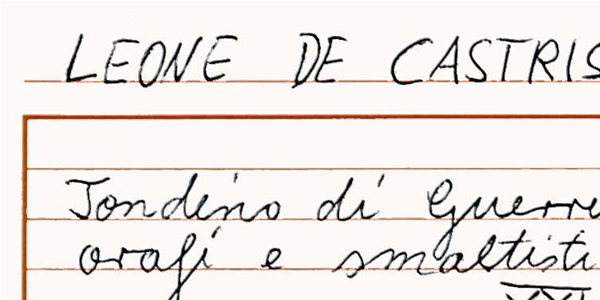 LEONE DE CASTRIS
Tondino di Guerre
orafi e smaltisti
XVI